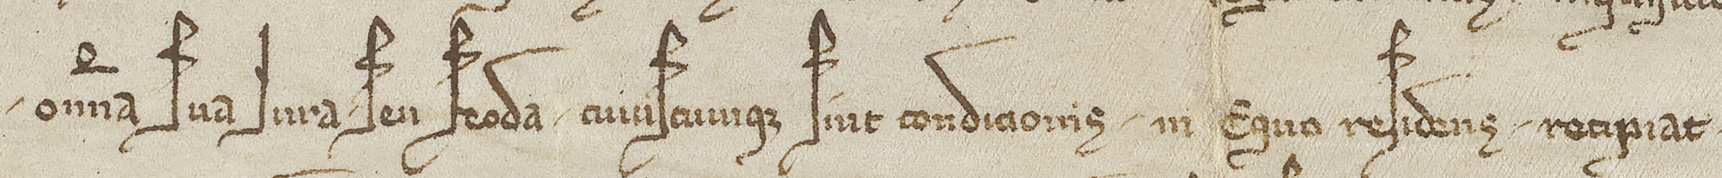 om̅ia sua Iura / seu feoda / cuiuscumqꝫ sint condicionis / in Equo residens / recipiat